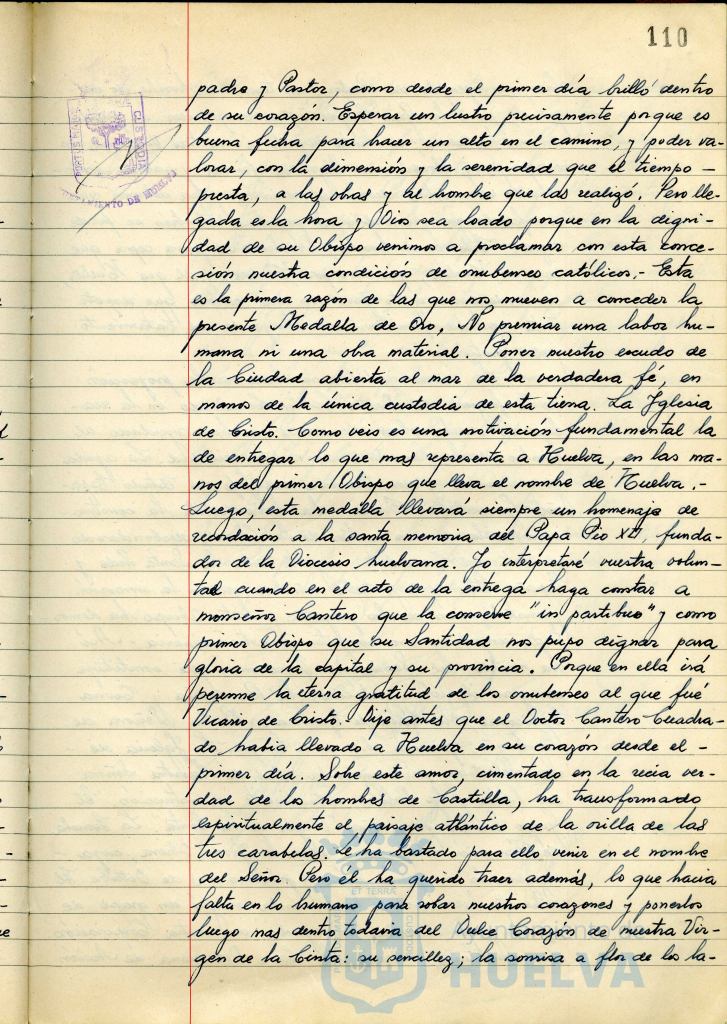 110
padre y Pastor, como desde el primer día brilló dentro
de su corazón. Esperar un lustro precisamente porque es
buena fecha para hacer un alto en el camino, y poder va-
lorar, con la dimensión y la serenidad que el tiempo -
presta, a las obras y al hombre que las realizó. Pero lle-
gada es la hora y Dios sea loado porque en la digni-
dad de su Obispo venimos a proclamar con esta conce-
sión nuestra condición de onubenses católicos.- Esta
es la primera razón de las que nos mueven a conceder la
presente Medalla de Oro, No premiar una labor hu-
mana ni una obra material. Poner nuestro escudo de
la Ciudad abierta al mar de la verdadera fé, en
manos de la única custodia de esta tierra. La Iglesia
de Cristo. Como veis es una motivación fundamental la
de entregar lo que mas representa a Huelva, en las ma-
nos del primer Obispo que lleva el nombre de Huelva.-
Luego, esta medalla llevará siempre un homenaje de
recordación a la santa memoria del Papa Pio XII, funda-
dor de la Diocesis huelvana. Yo interpretaré vuestra volun-
tad cuando en el acto de la entrega haga constar a
monseñor Cantero que la conserve "in partibus" y como
primer Obispo que su Santidad nos supo dignar para
gloria de la capital y su provincia. Porque en ella irá
perenne la eterna gratitud de los onubenses al que fué
Vicario de Cristo. Dije antes que el Doctor Cantero Cuadra-
do habia llevado a Huelva en su corazón desde el -
primer día. Sobre este amor, cimentado en la recia ver-
dad de los hombres de Castilla, ha transformado
espiritualmente el paisaje atlántico de la orilla de las
tres carabelas. Le ha bastado para ello venir en el nombre
del Señor. Pero él ha querido traer además, lo que hacia
falta en lo humano para robar nuestros corazones y ponerlos
luego mas dentro todavia del Dulce Corazón de nuestra Vir-
gen de la Cinta: su sencillez; la sonrisa a flor de los la-
HUELVA